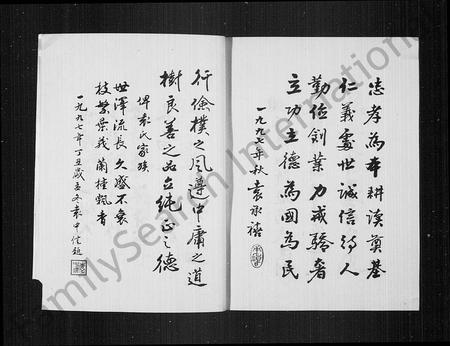 忠孝為本耕读奠基
仁義處世诚信待人
勤俭創業力戒驕奢
立功立德為國為民
一九九七年秋袁承禧
行俭樸之風遵中庸之道
樹良善之品立純正之德
袁氏家族
世澤流長久盛不衰
枝繁葉茂蘭桂飄香
一九九七年丁丑歲孟冬袁中信题
FamilySearch International